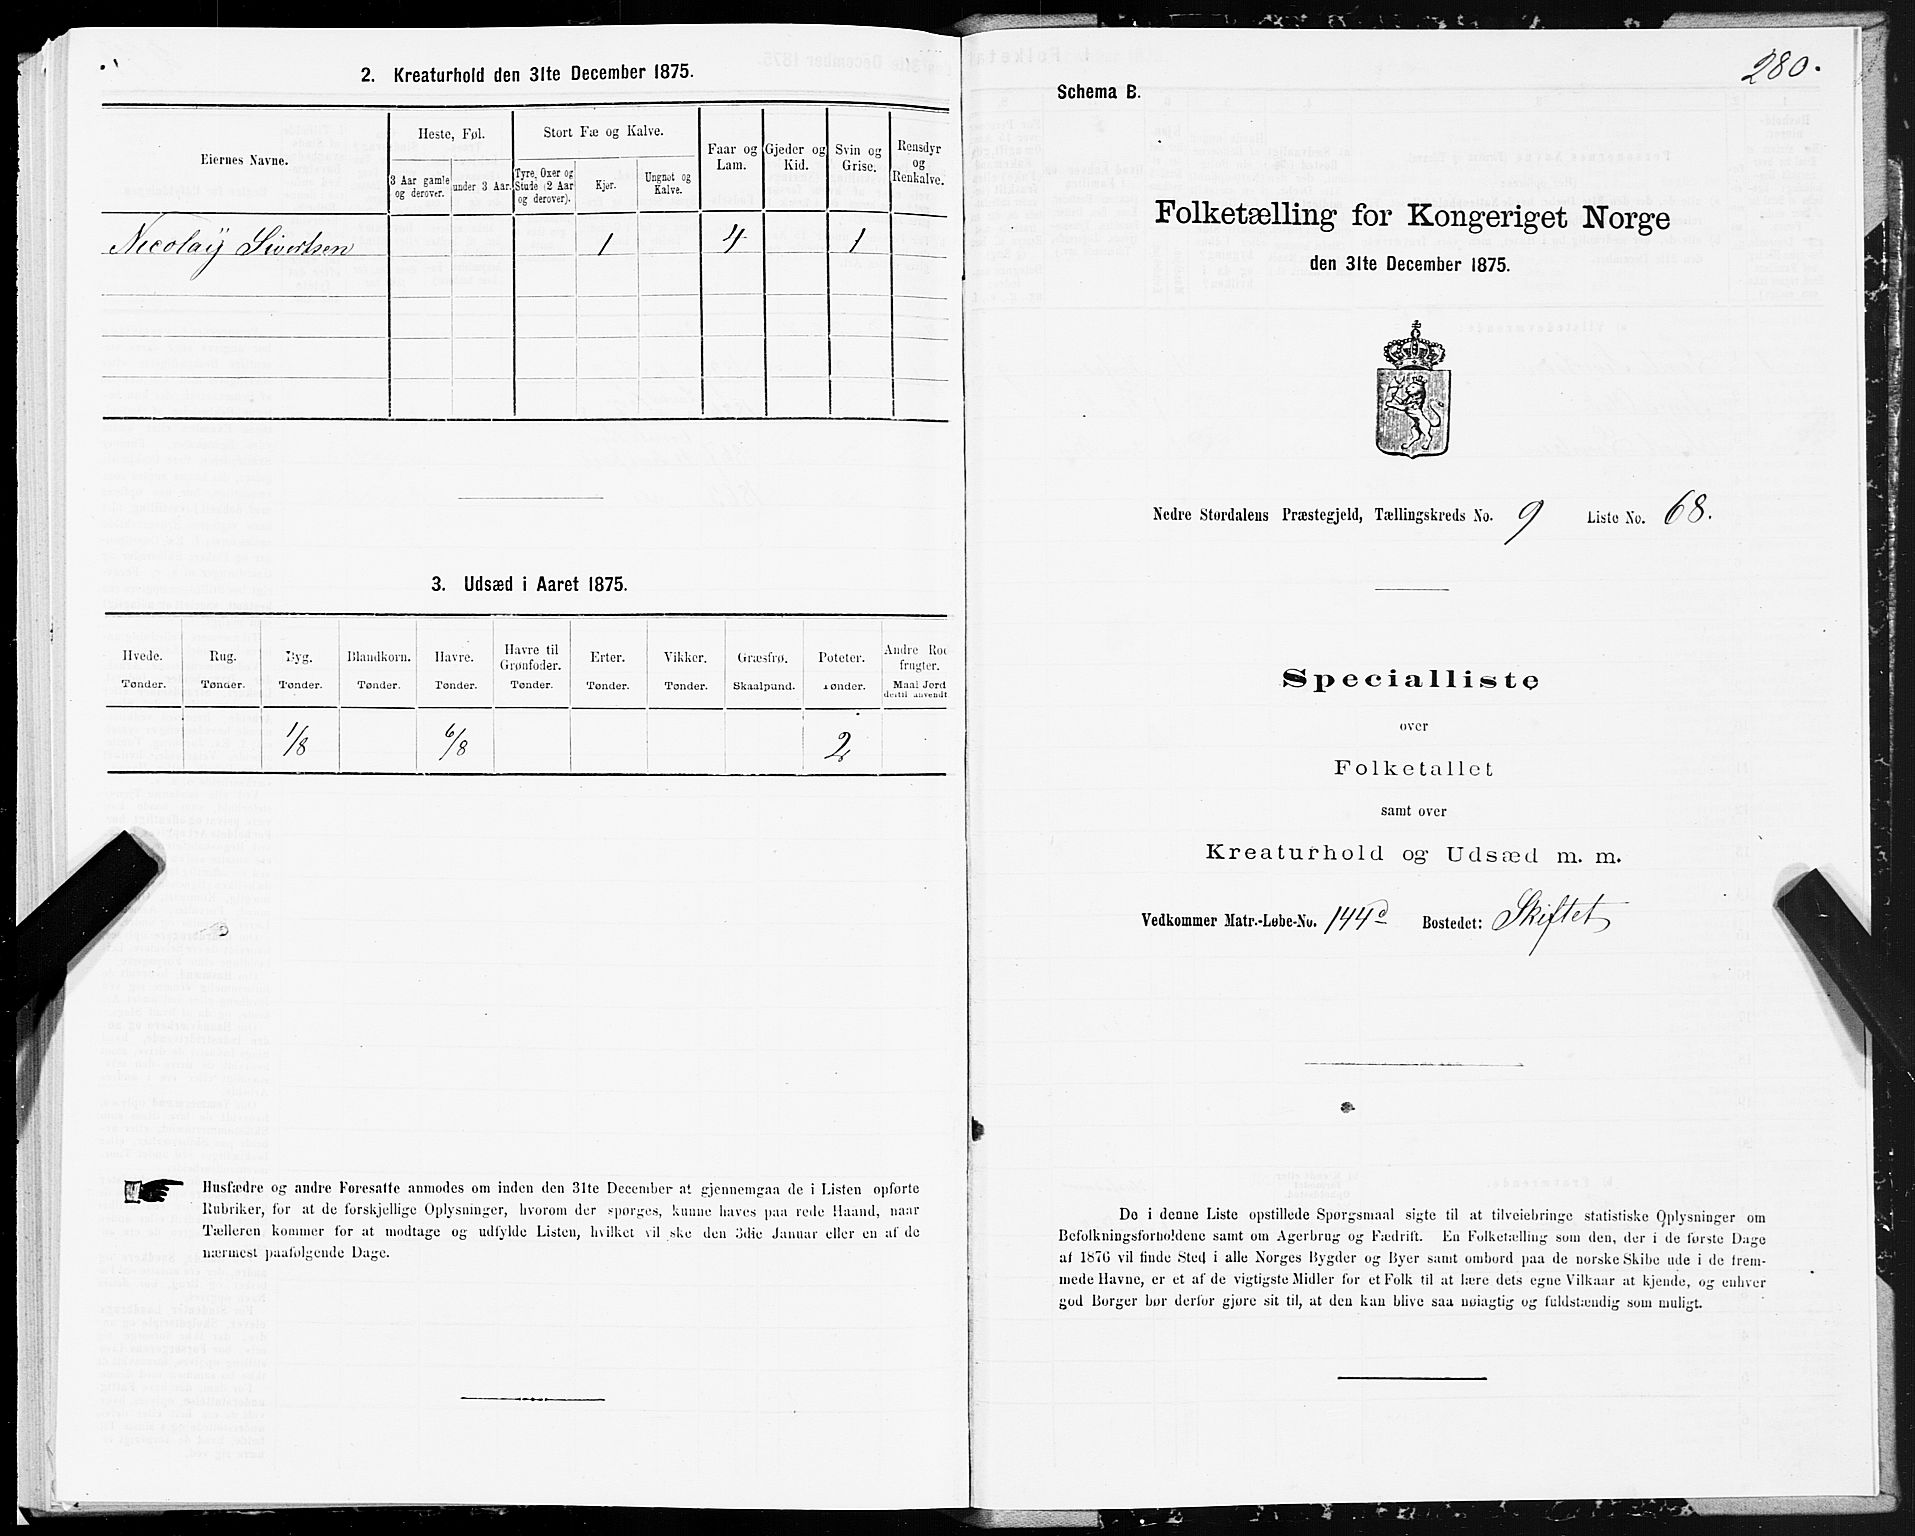 2. Kreaturhold den 31te December 1875.
Eiernes Navne.
Heste, Føl.
3 Aar gamle og derover.
under 3 Aar.
Stort Fæ og Kalve.
Tyre, Oxer og Stude (2 Aar og derover).
Kjør.
Ungnøt og Kalve.
Faar og Lam.
Gjeder og Kid.
Svin og Grise.
Rensdyr og Renkalve.
Nicolaÿ Sivertsen 1 4 1
3. Udsæd i Aaret 1875.
Hvede. Rug. Byg. Blandkorn. Havre. Havre til Grønfoder. Erter. Vikker. Græsfrø. Poteter. Andre Rodfrugter.
Tønder. Tønder. Tønder. Tønder. Tønder. Tønder. Tønder. Tønder. Skaalpund. Tønder. Maal Jord dertil anvendt
1/8 6/8 2
Husfædre og andre Foresatte anmodes om inden den 31te December at gjennemgaa de i Listen opførte
Rubriker, for at de forskjellige Oplysninger, hvorom der spørges, kunne haves paa rede Haand, naar
Tælleren kommer for at modtage og udfylde Listen, hvilket vil ske den 3die Januar eller en af de
nærmest paafølgende Dage.
280.
Schema B.
Folketælling for Kongeriget Norge
den 31te December 1875.
Nedre Stordalens Præstegjeld, Tællingskreds No. 9 Liste No. 68.
Specialliste
over
Folketallet
samt over
Kreaturhold og Udsæd m. m.
Vedkommer Matr.-Løbe-No. 144d Bostedet: Skiftet
De i denne Liste opstillede Spørgsmaal sigte til at tilveiebringe statistiske Oplysninger om
Befolkningsforholdene samt om Agerbrug og Fædrift. En Folketælling som den, der i de første Dage
af 1876 vil finde Sted i alle Norges Bygder og Byer samt ombord paa de norske Skibe ude i de frem-
mede Havne, er et af de vigtigste Midler for et Folk til at lære dets egne Vilkaar at kjende, og enhver
god Borger bør derfor gjøre sit til, at den kan blive saa nøiagtig og fuldstændig som muligt.